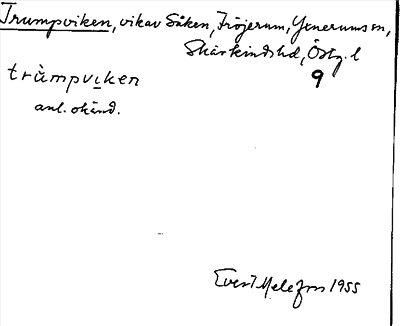 Trumpviken, vik av Säken, Fröjerum, Yxnerums sn,
Skärkinds hd, Östg. l
9
tràmpviken
anl. okänd.
Evert Melefors 1955